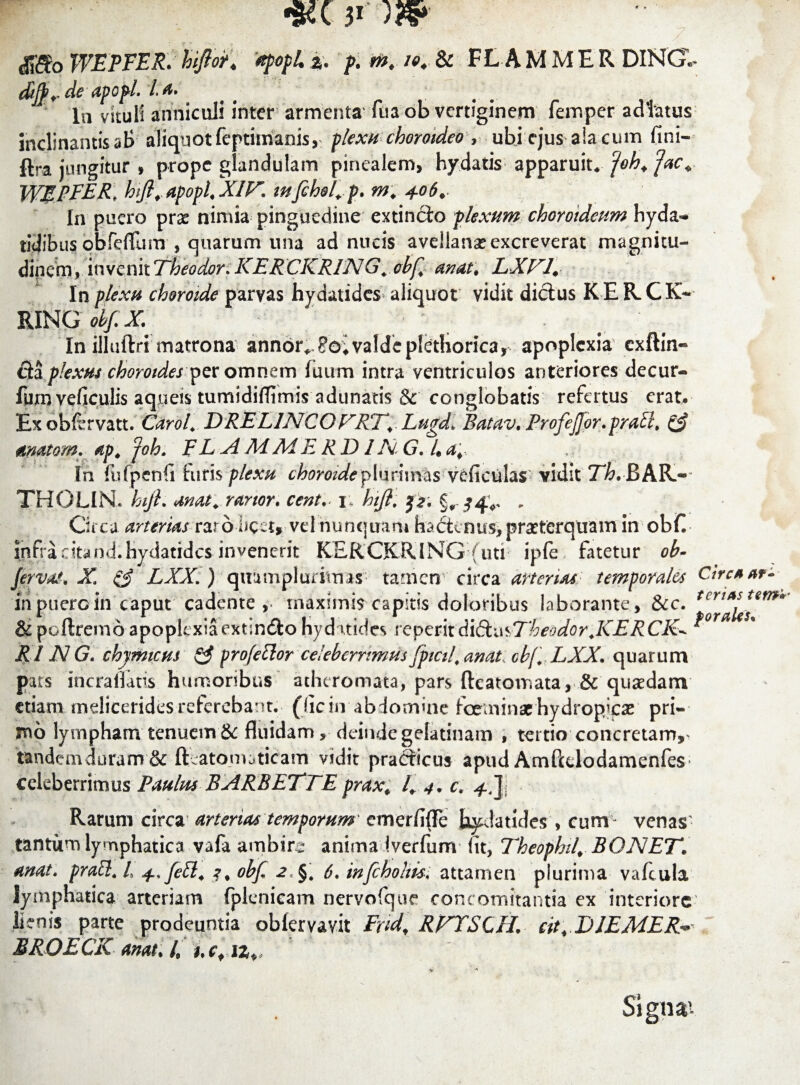 31
dicto WEPFER. histor. apopl. 2. p. m. 10. & FLAMMERDING.
diss. de apopl. l. a.
In vituli anniculi inter armenta sua ob vertiginem semper ad latus
inclinantis ab aliquot septimanis, plexu choroideo , ubi ejus ala cum sini-
stra jungitur , prope glandulam pinealem, hydatis apparuit. Joh. Jac.
WEPFER. hist. apopl. XIV. in schol. p. m. 406.
In puero præ nimia pinguedine extincto plexum choroideum hyda-
tidibus obsessum , quarum una ad nucis avellanæ excreverat magnitu-
dinem, invenit Theodor. KERCKRING. obs. anat. LXVI.
In plexu choroide parvas hydatides aliquot vidit dictus KERCK-
RING obs. X.
In illustri matrona annor. 80. valde plethorica, apoplexia exstin-
cta plexus choroides per omnem suum intra ventriculos anteriores decur-
sum vesiculis aqueis tumidissimis adunatis & conglobatis refertus erat.
Ex observatt. Carol. DRELINCOVRT. Lugd. Batav. Professor. pract. &
anatom. ap. Joh. FLAMMERDING. l. a.
In suspensi furis plexu choroide plurimas vesiculas vidit Th. BAR-
THOLIN. hist. anat. rarior. cent. 1. hist. 32. §. 34.
Circa arterias raro licet, vel nunquam hactenus, præterquam in obs.
infra citand. hydatides invenerit KERCKRING (uti ipse fatetur ob-
servat. X. & LXX.) quamplurimas tamen circa arterias temporales
in puero in caput cadente , maximis capitis doloribus laborante, &c.
& postremo apoplexia extincto hydatides reperit dictus Theodor. KERCK-
RING. chymicus & professor celeberrimus spicil. anat. obs. LXX. quarum
pars incrassatis humoribus atheromata, pars steatomata, & quædam
etiam melicerides referebant. (sic in abdomine fœminæ hydropicæ pri-
mo lympham tenuem & fluidam, deinde gelatinam , tertio concretam,
tandem duram & steatomaticam vidit practicus apud Amstelodamenses
celeberrimus Paulus BARBETTE prax. l. 4. c. 4.]
Circa ar-
terias tem-
porales.
Rarum circa arterias temporum emersisse hydatides , cum venas
tantum lymphatica vasa ambire animadversum sit, Theophil. BONET.
anat. pract. l. 4. sect. 3. obs. 2. §. 6. in scholiis. attamen plurima vascula
lymphatica arteriam splenicam nervosque concomitantia ex interiore
lienis parte prodeuntia observavit Frid. RVYSCH. cit. DIEMER-
BROECK anat. l. 1. c. 12.
Signa